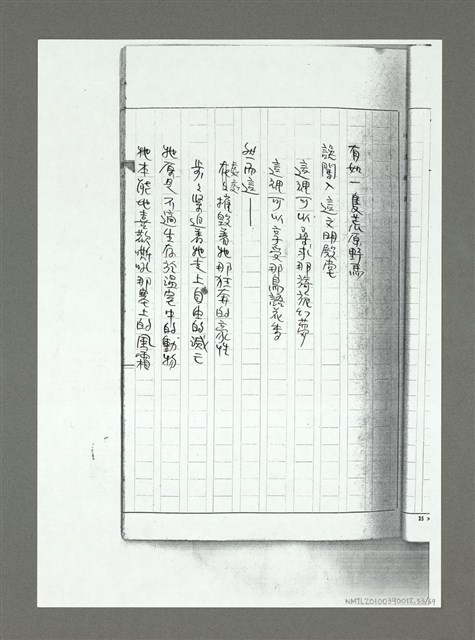 有如一隻荒原野馬
誤闖入這文明殿堂
這裡可以尋求那旖旎幻夢
這裡可以享受那鳥語花香
然而這——
處處摧毀著牠那狂奔的豪性
步々緊迫著牠走上自由的滅亡
牠原是不適生存於溫室中的動物
牠本能地喜歡嘶吼那塞上的風霜
25
NMTL20100390018.53/69